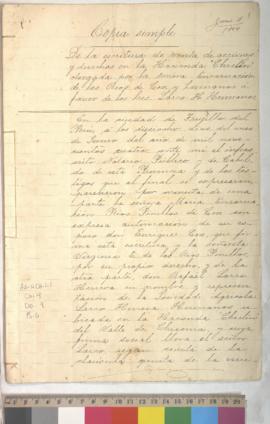 Junio 18/
1904
Copia simple
De la escritura de venta de acciones
y derechos en la Hacienda "Chiclín"
otorgada por la señora Encarnación
de los Ríos de Cox y hermanas a
favor de los tres Larco H. Hermanos
En la ciudad de Trujillo del
Perú, a los dieciocho días del mes
de Junio del año de mil nove-
cientos cuatro ante mí el infras-
crito Notario Público y de Cabil-
do de esta Provincia y de los tes-
tigos que al final se expresarán
parecieron por una
parte la señora María Encarna-
ción Ríos Pinillos de Cox con
expresa autorización de su es-
poso don Enrique Cox, que fir-
ma esta escritura y la señorita
de los Ríos Pinillos,
por su propio derecho; y de la
otra parte, don Rafael Larco
Herrera en nombre y represen-
tación de la Sociedad Agrícola
Larco Herrera Hermanos u-
bicada en la Hacienda Chiclín
del Valle de Chicama, y cuya
firma social lleva el señor
Larco, según consta de la
cláusula quinta de la